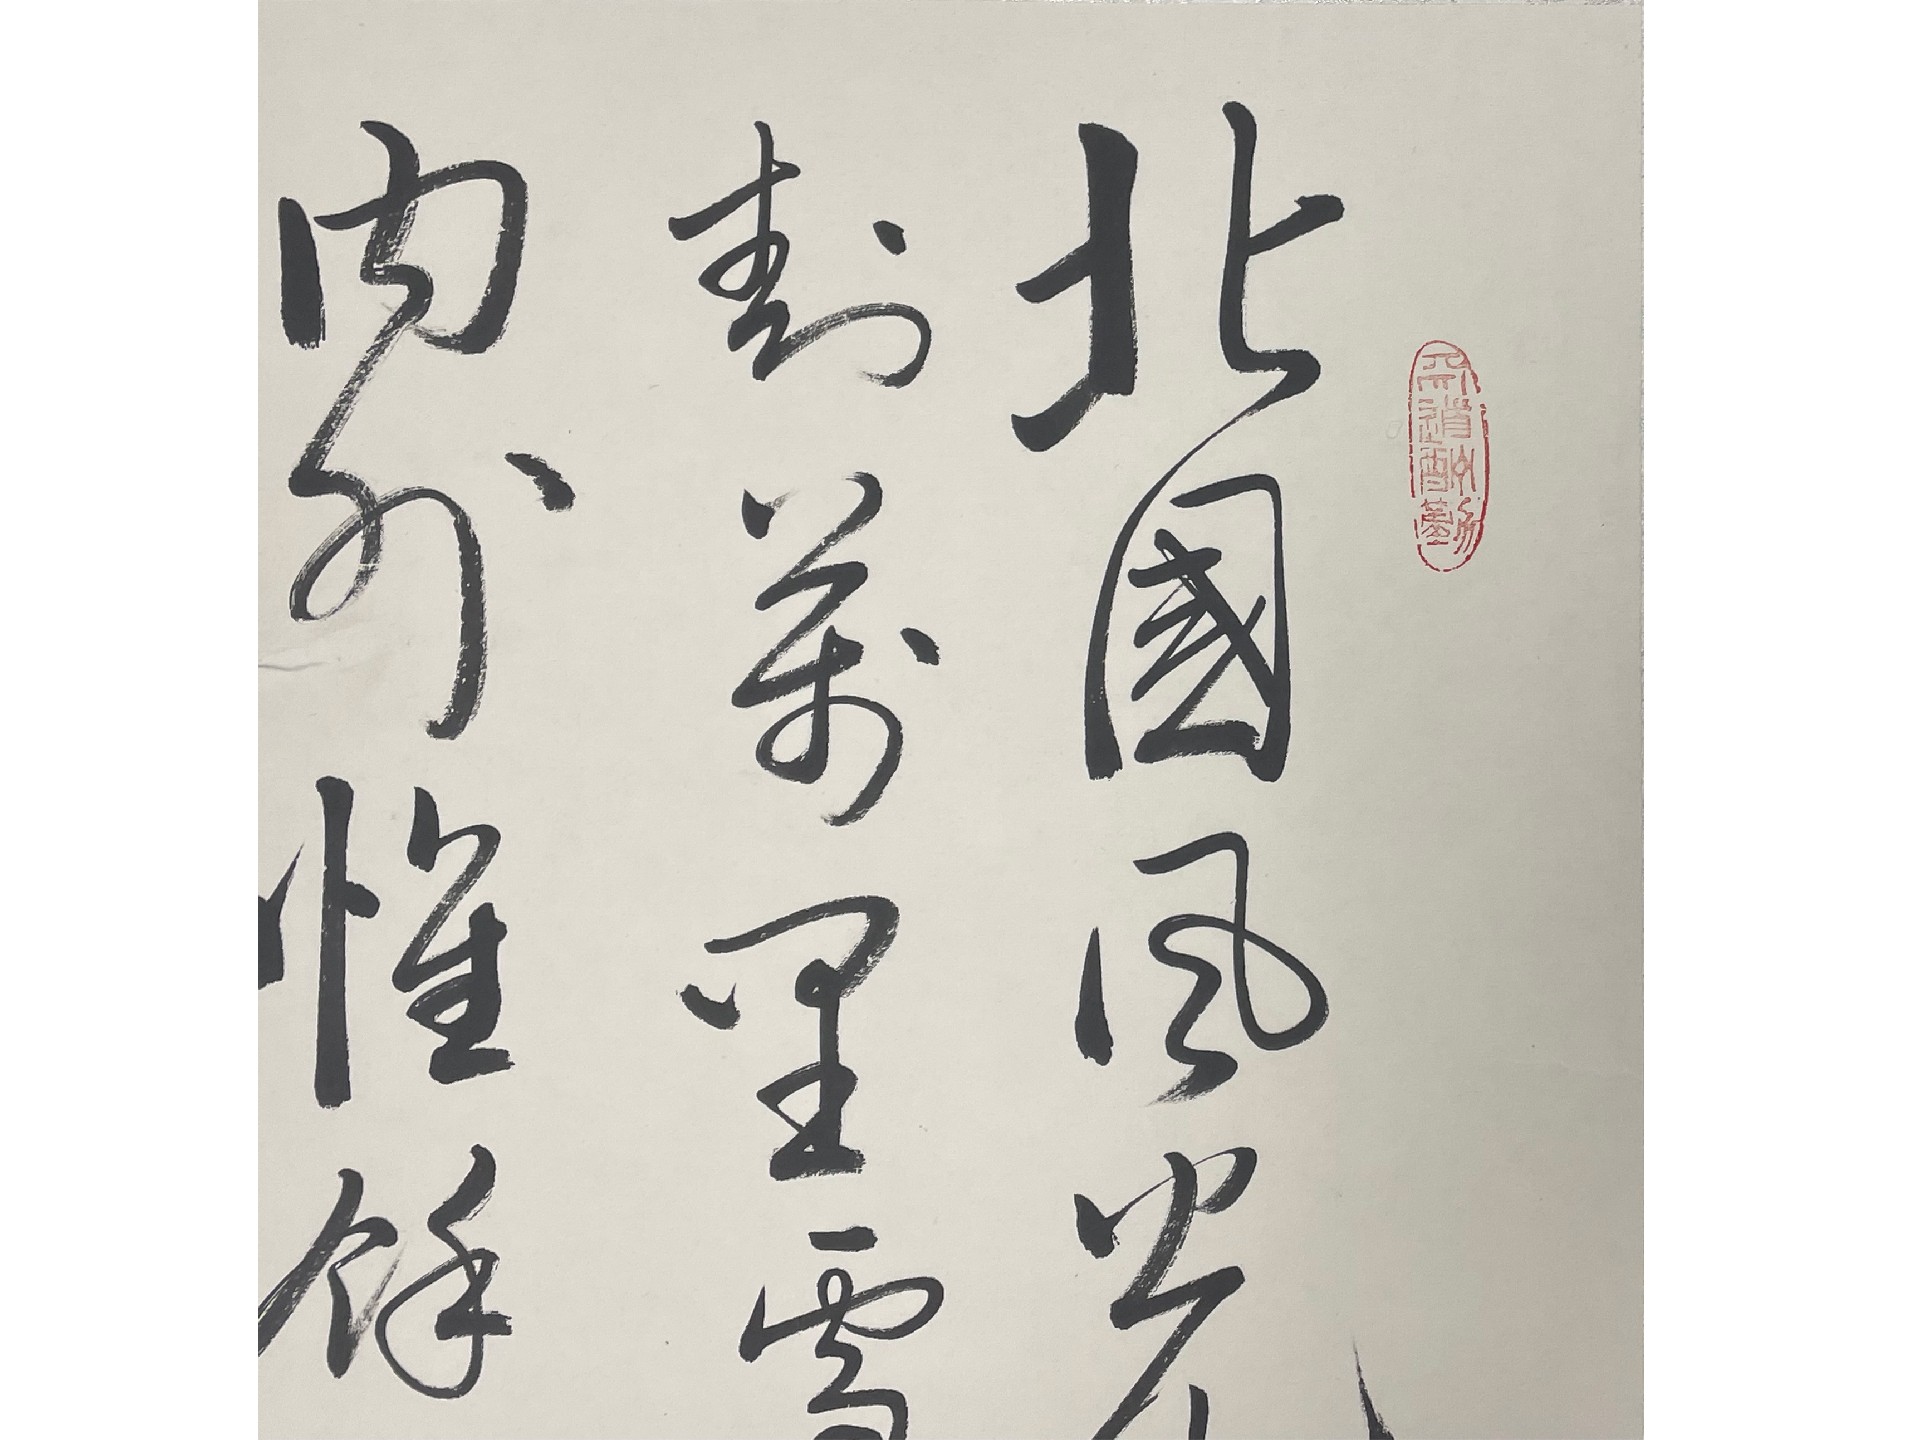 北國風光
封萬里雪
內外惟餘